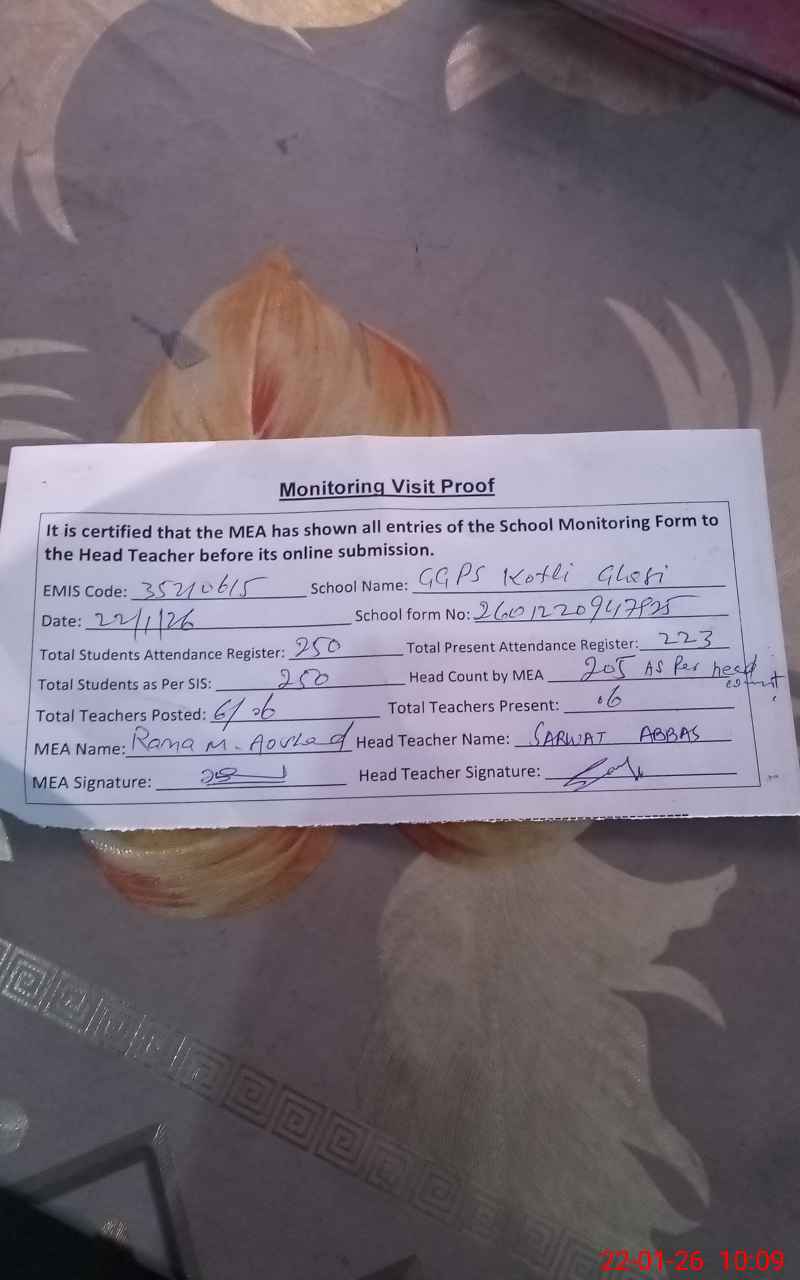 Monitoring Visit Proof
It is certified that the MEA has shown all entries of the School Monitoring Form to
the Head Teacher before its online submission.
EMIS Code: 35210615 School Name: GGPS Kotli Ghasi
Date: 22/1/26 School form No: 2601220947825
Total Students Attendance Register: 250 Total Present Attendance Register: 223
Total Students as Per SIS: 250 Head Count by MEA 205 AS Per head count
Total Teachers Posted: 6/06 Total Teachers Present: 06
MEA Name: Rana M. Head Teacher Name: SARWAT ABBAS
MEA Signature: Head Teacher Signature:
22-01-26 10:09